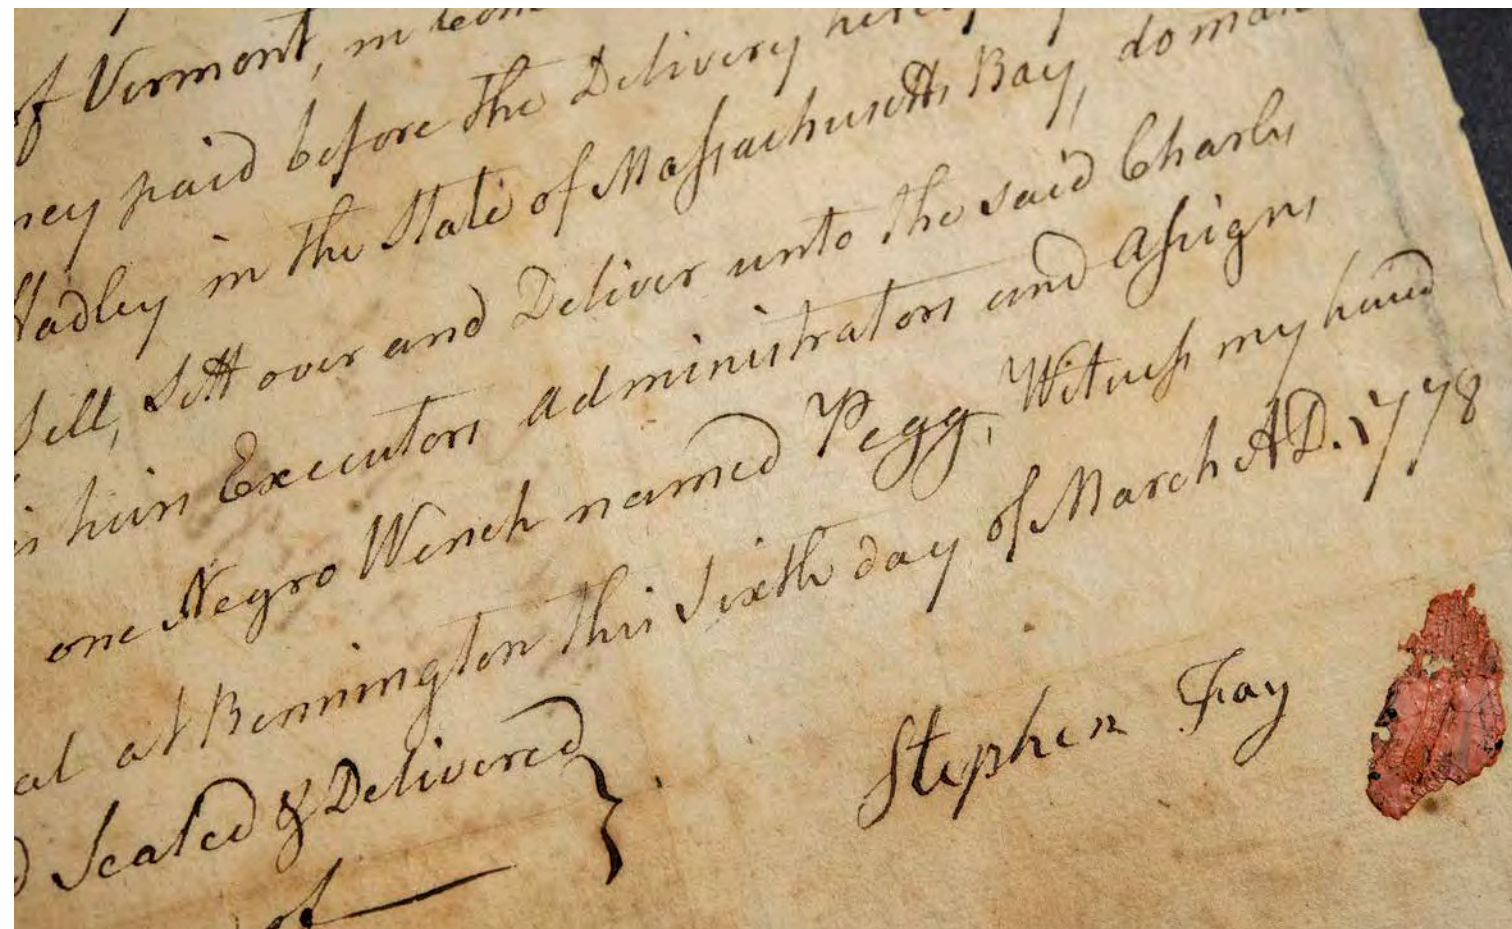 of Vermont, in
ney paid before the Delivery
Hadley in the State of Massachusetts Bay, do
Sell, Sett over and Deliver unto the said Charles
is heirs Executors Administrators and Assigns
one Negro Wench named Pegg, Witness my hand
al at Bennington this Sixth day of March AD. 1778
d Sealed & Delivered }
of
Stephen Fay